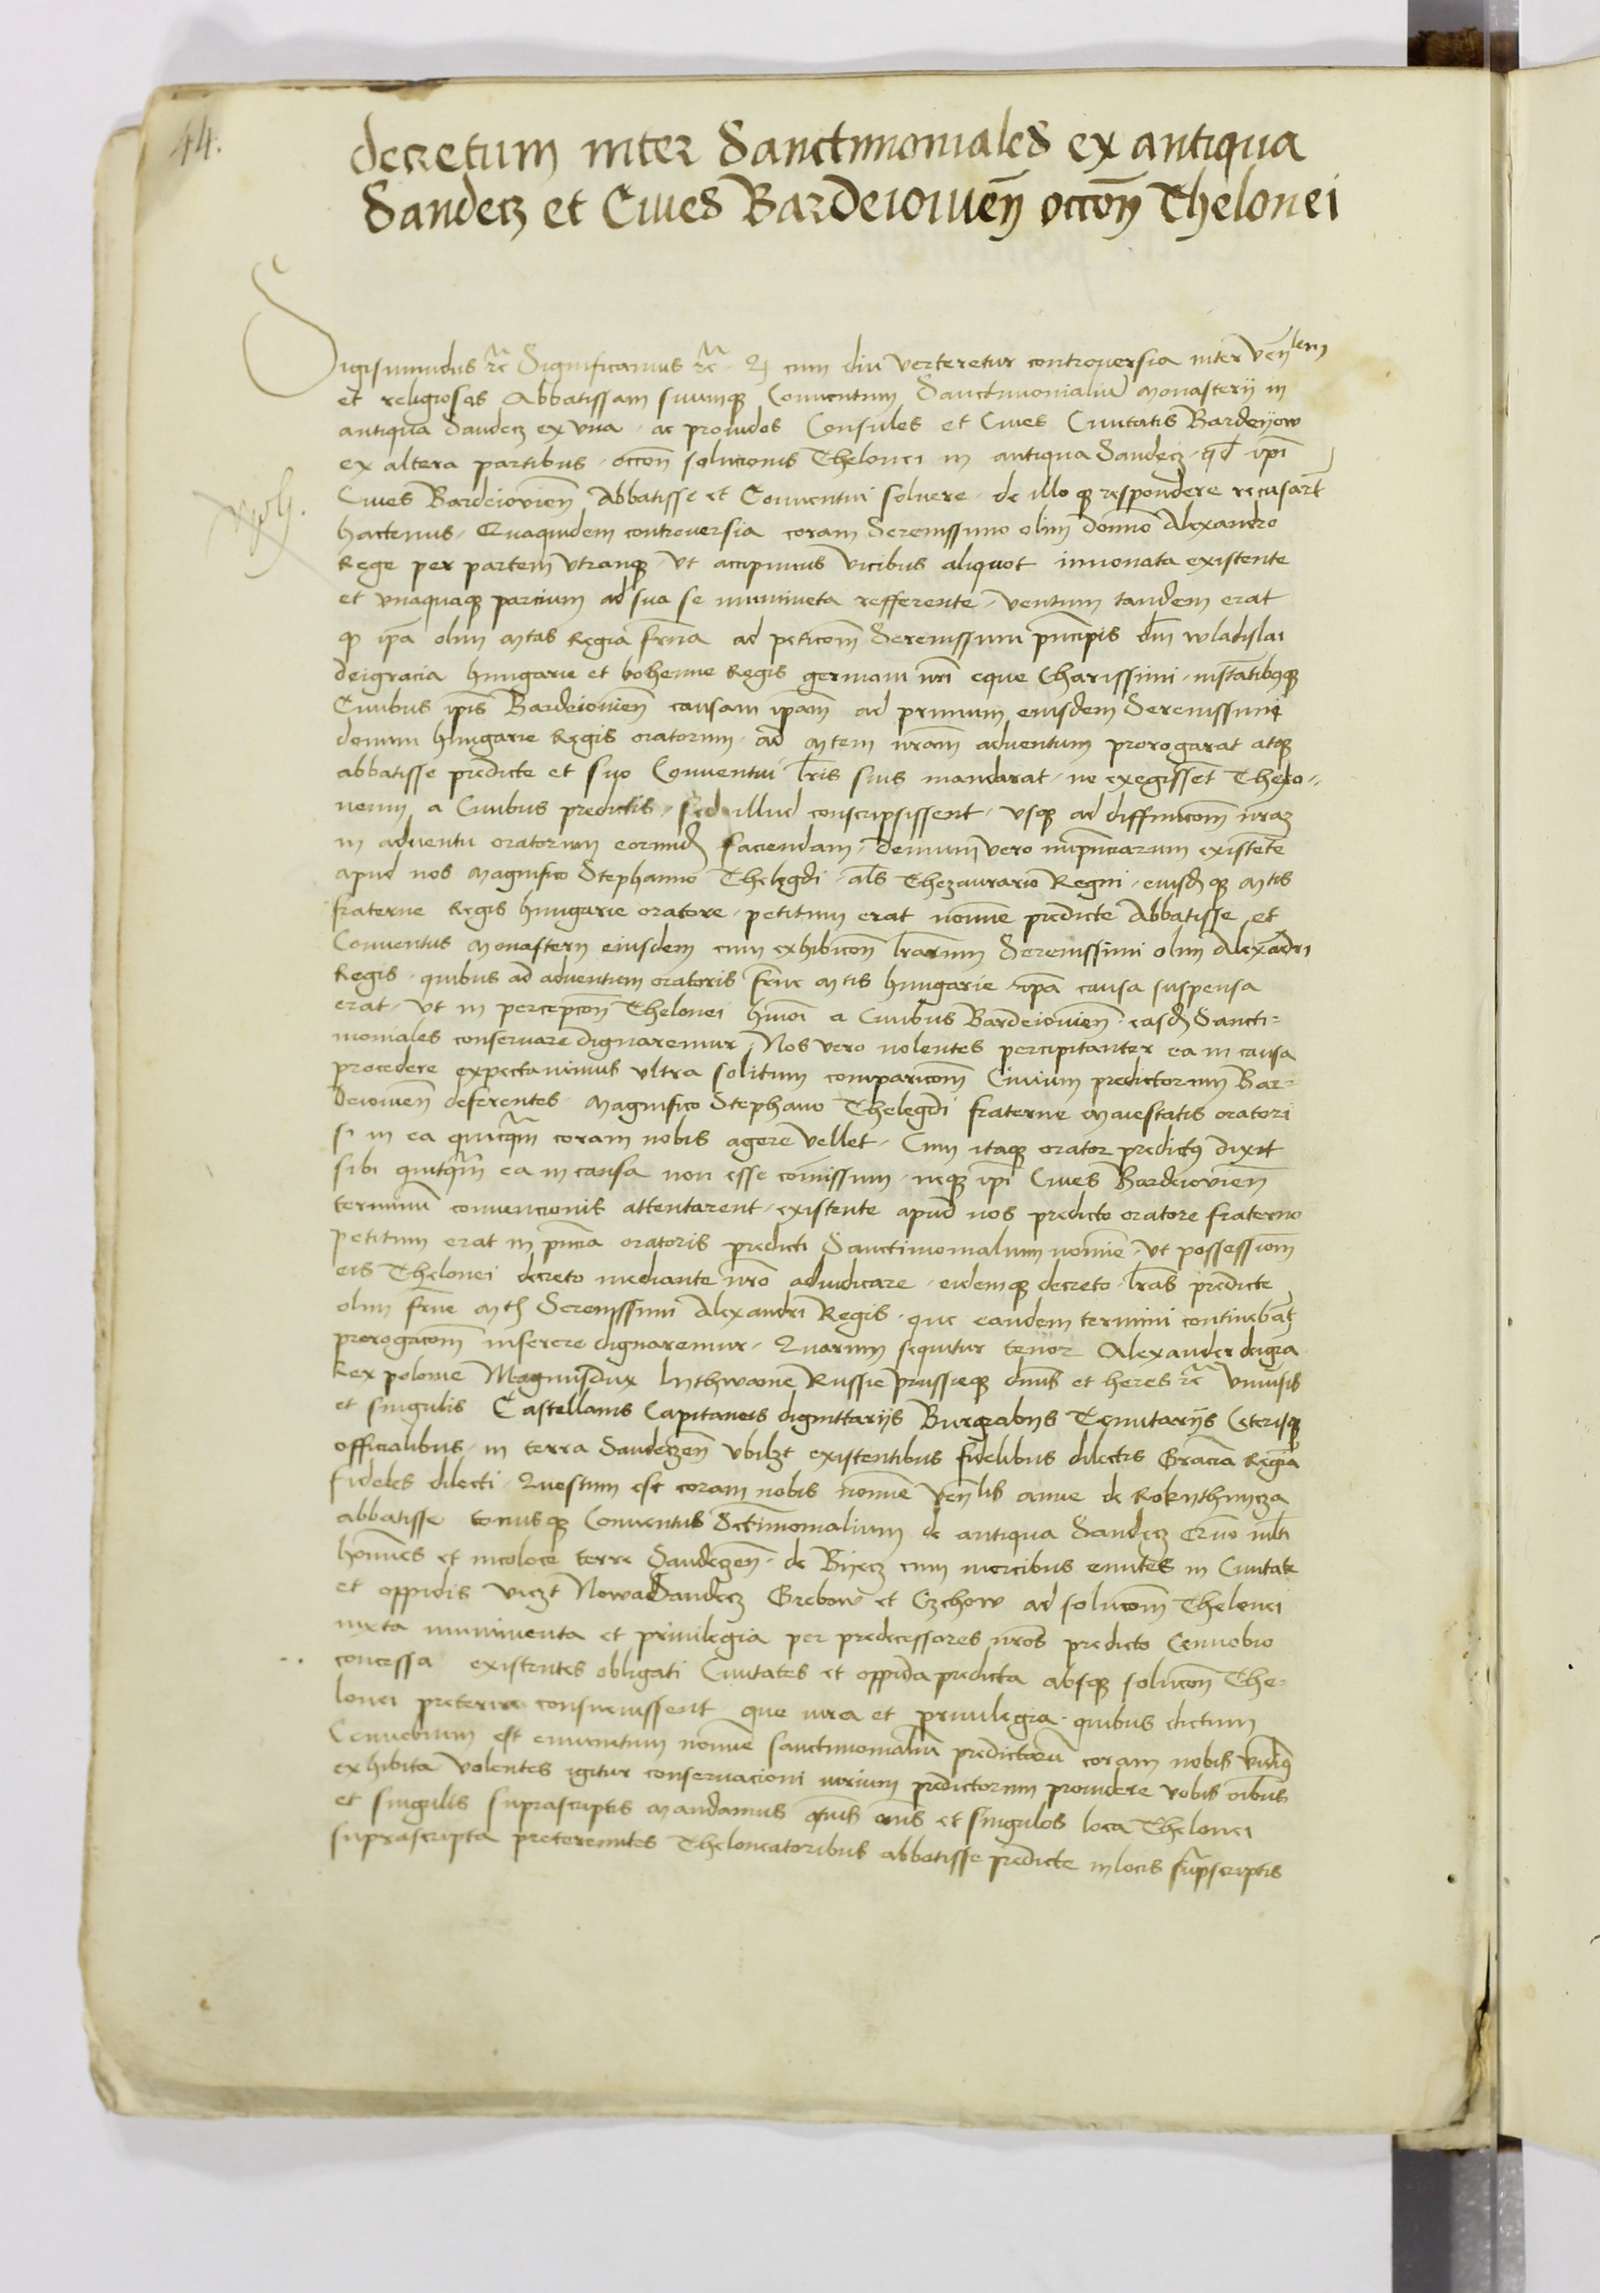 44.
decretum inter Sanctimoniales ex antiqua
Sandecz et Cives Bardeiovien̄ occon̄ Thelonei
Sigismundus rc̄ Significamus rc̄ Q cum diu verteretur controversia inter ven̄lem
et religiosas Abbatissam suumq Conventum Sanctimonialiū monasterij in
antiqua Sandecz ex vna ac providos Consules et Cives Civitatis Bardeyow
ex altera partibus occon̄ solucionis Thelonei in antiqua Sandecz qd ipī
Cives Bardeiovien̄ Abbatisse et Conventui solvere de illo q respondere recusarēt
hactenus Quaquidem controversia coram Serenissimo olim domīo Alexandro
Rege per partem vtranq vt accipimus vicibus aliquot innovata existente
et vnaquaq parcium ad sua se munimēta refferente ventum tandem erat
q ipā olim Mtas Regia frn̄a ad peticōem Serenissimi pn̄cipis dn̄i wladislai
deigracia hungarie et bohemie Regis germani nr̄i eque Charissimi instantibusq
Civibus ipīs Bardeiovien̄ causam ipam̄ ad primum eiusdem Serenissimi
domini hungarie Regis oratorum ad Mtem nram̄ adventum prorogarat atq
abbatisse predicte et suo Conventui lr̄is suis mandarat ne exegissēt Thelo-
neum a Civibus predictis sed illud conscripsissent vsq ad diffinicōem nram
in adventu oratorum eorund faciendam Demum vero inpn̄ciarum existente
apud nos Magnifico Stephanno Thelegdi als̄ Thezaurario Regni eiusdq Mtis
fraterne Regis hungarie oratore petitum erat nomīe predicte Abbatisse et
Conventus Monasterij eiusdem cum exhibicōe lr̄arum Serenissimi olim Alexādri
Regis quibus ad adventum oratoris frn̄e Mtis hungarie ipā causa suspensa
erat vt in percepcōe Thelonei hmōi a Civibus Bardeiovien̄ easd Sancti-
moniales conservare dignaremur Nos vero nolentes percipitanter ea in causa
procedere expectavimus vltra solitum comparicōem Civium predictorum Bar-
deiovien̄ deferentes Magnifico Stephano Thelegdi fraterne Maiestatis oratori
si in ea quicq̄m coram nobis agere vellet Cum itaq orator predictus dixit
sibi quitq̄m ea in causa non esse comissum neq ipī Cives Bardeiovien̄
terminū convencionis attentarent existente apud nos predicto oratore fraterno
petitum erat in pn̄cia oratoris predicti Sanctimonialium nomīe vt possessionem
eis Thelonei decreto mediante nr̄o adiudicare eidemq decreto lr̄as predicte
olim frn̄e Mtis Serenissimi Alexandri Regis que eandem termini continebāt
prorogacōem inserere dignaremur Quarum sequitur tenor Alexander deigra
Rex polonie Magnusdux lythwanie Russie prussieq dnūs et heres rc̄ Vnivsis
et singulis Castellanis Capitaneis dignittarijs Burgrabijs Tenutarijs Ceterisq
officialibus in terra Sandeczen̄ vbilzt existentibus fidelibus dilectis Graciā Regiā
fideles dilecti Questum est coram nobis nomīe ven̄lis anne de Rokythnycza
abbatisse tociusq Conventus Sctimonialium de antiqua Sandecz
homīes et incole terre Sandeczen̄ de Byecz cum mercibus euntes in Civitate
et oppidis viczt NowaSandecz Grebow et Czchow ad solucōem Thelonei
iuxta munimenta et privilegia per predecessores nr̄os predicto Cenobio
concessa existentes obligati Civitates et oppida predicta absq solucōe The-
lonei preterire consuevissent que iura et privilegia quibus dictum
Cenobium est emunitum nomīe sanctimonialiū predictarū coram nobis
exhibita volentes igitur conservacioni iurium predictorum providere vobis oībus
et singulis suprascriptis Mandamus qtus oēs et singulos loca Thelonei
suprascripta pretereuntes Theloneatoribus abbatisse predicte in locis suprascriptis